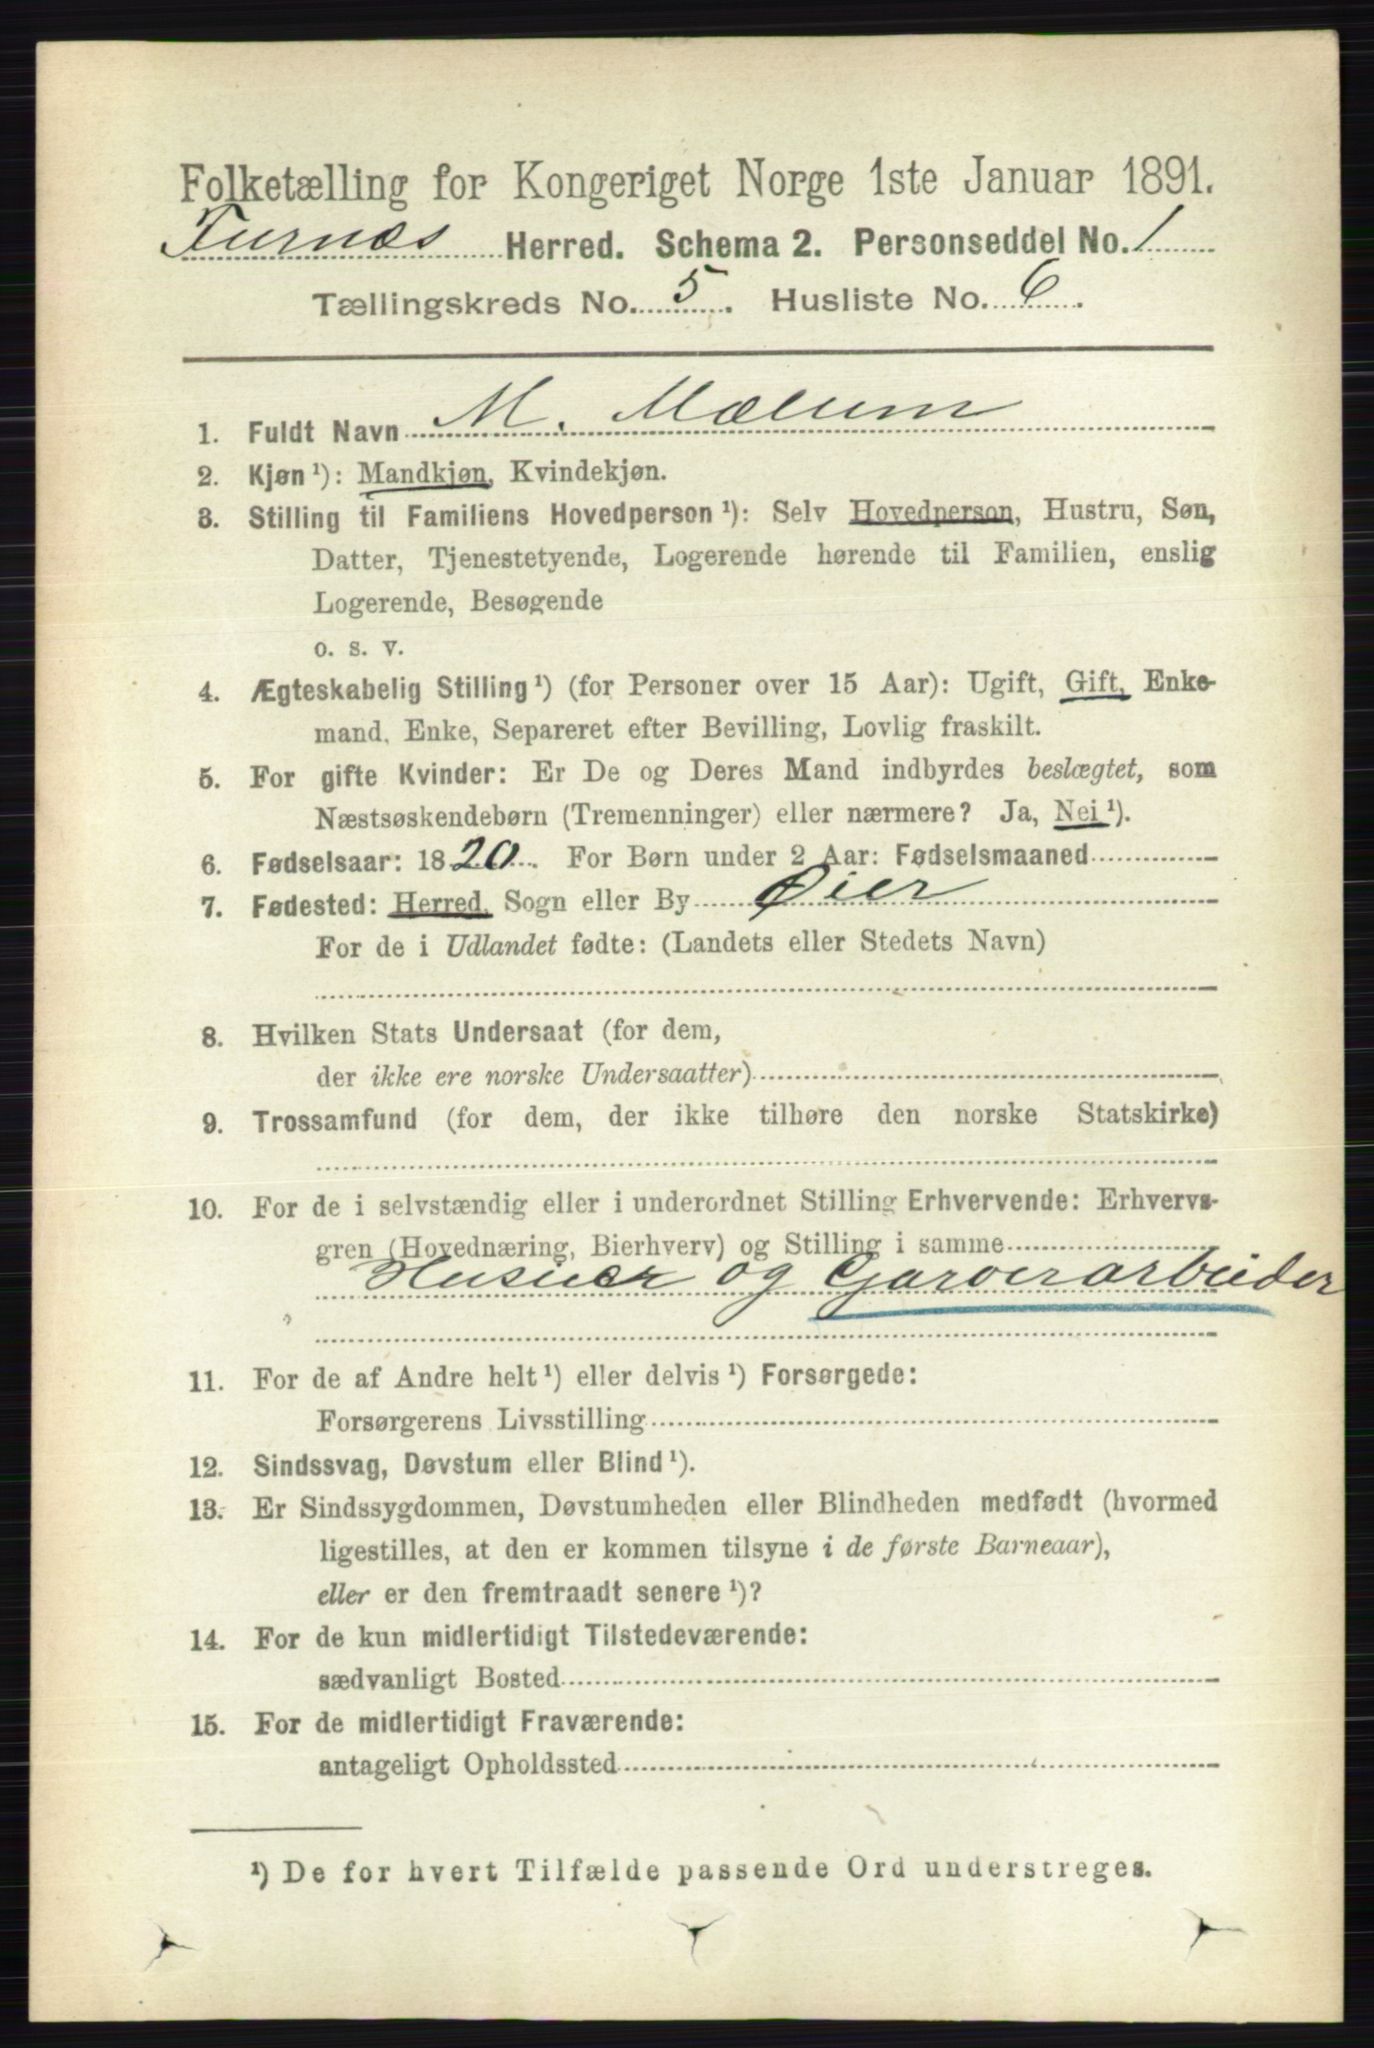 Folketælling for Kongeriget Norge 1ste Januar 1891.
Furnæs Herred. Schema 2. Personseddel No. 1
Tællingskreds No. 5. Husliste No. 6.
1. Fuldt Navn M. Mælum
2. Kjøn ¹): Mandkjøn, Kvindekjøn.
3. Stilling til Familiens Hovedperson ¹): Selv Hovedperson, Hustru, Søn,
Datter, Tjenestetyende, Logerende hørende til Familien, enslig
Logerende, Besøgende
o. s. v.
4. Ægteskabelig Stilling ¹) (for Personer over 15 Aar): Ugift, Gift, Enke-
mand, Enke, Separeret efter Bevilling, Lovlig fraskilt.
5. For gifte Kvinder: Er De og Deres Mand indbyrdes beslægtet, som
Næstsøskendebørn (Tremenninger) eller nærmere? Ja, Nei ¹).
6. Fødselsaar: 1820. For Børn under 2 Aar: Fødselsmaaned
7. Fødested: Herred, Sogn eller By Øier
For de i Udlandet fødte: (Landets eller Stedets Navn)
8. Hvilken Stats Undersaat (for dem,
der ikke ere norske Undersaatter)
9. Trossamfund (for dem, der ikke tilhøre den norske Statskirke)
10. For de i selvstændig eller i underordnet Stilling Erhvervende: Erhvervs-
gren (Hovednæring, Bierhverv) og Stilling i samme
Husiær og Garverarbeider
11. For de af Andre helt ¹) eller delvis ¹) Forsørgede:
Forsørgerens Livsstilling
12. Sindssvag, Døvstum eller Blind ¹).
13. Er Sindssygdommen, Døvstumheden eller Blindheden medfødt (hvormed
ligestilles, at den er kommen tilsyne i de første Barneaar),
eller er den fremtraadt senere ¹)?
14. For de kun midlertidigt Tilstedeværende:
sædvanligt Bosted
15. For de midlertidigt Fraværende:
antageligt Opholdssted
¹) De for hvert Tilfælde passende Ord understreges.